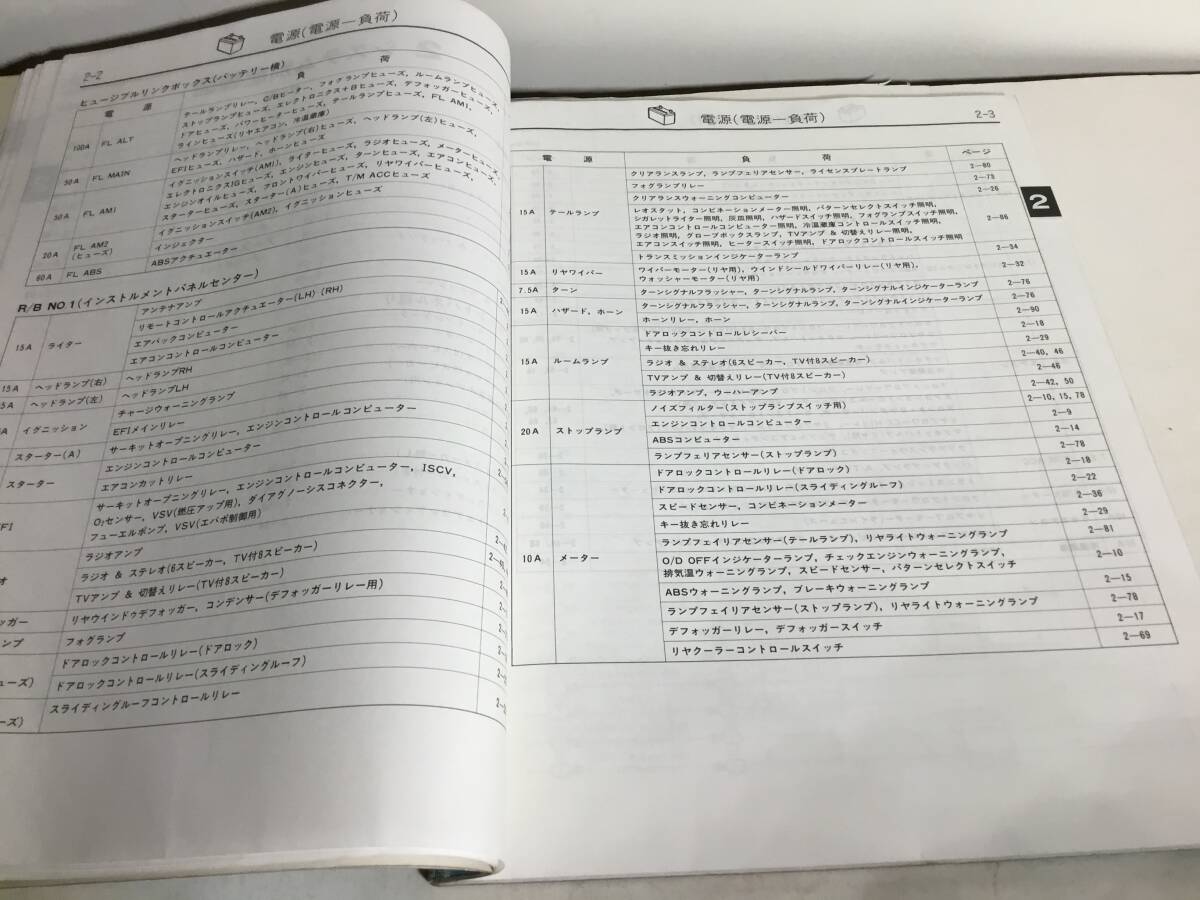 2-2
電源(電源―負荷)
ヒュージブルリンクボックス(バッテリー横)
電 源
負 荷
100A FL ALT
テールランプリレー, C/Bヒーター, フォグランプヒューズ, ルームランプヒューズ,
ストップランプヒューズ, エレクトロニクス+Bヒューズ, デフォッガーヒューズ,
ドアヒューズ, パワーヒーターヒューズ, テールランプヒューズ, FL AM1,
ラインヒューズ(リヤエアコン, 冷温蔵庫)
50A FL MAIN
ヘッドランプリレー, ヘッドランプ(右)ヒューズ, ヘッドランプ(左)ヒューズ,
EFIヒューズ, ハザード, ホーンヒューズ
50A FL AM1
イグニッションスイッチ(AM1), ライターヒューズ, ラジオヒューズ, メーターヒューズ,
エレクトロニクスIGヒューズ, エンジンヒューズ, ターンヒューズ, エアコンヒューズ,
エンジンオイルヒューズ, フロントワイパーヒューズ, リヤワイパーヒューズ,
スターターヒューズ, スターター(A)ヒューズ, T/M ACCヒューズ
20A FL AM2
(ヒューズ)
イグニッションスイッチ(AM2), イグニッションヒューズ
インジェクター
60A FL ABS
ABSアクチュエーター
R/B NO.1(インストルメントパネルセンター)
15A ライター
アンテナアンプ
リモートコントロールアクチュエーター(LH)(RH)
エアバックコンピューター
エアコンコントロールコンピューター
15A ヘッドランプ(右)
ヘッドランプRH
5A ヘッドランプ(左)
ヘッドランプLH
A イグニッション
チャージウォーニングランプ
EFIメインリレー
スターター(A)
サーキットオープニングリレー, エンジンコントロールコンピューター
スターター
エンジンコントロールコンピューター
エアコンカットリレー
FI
サーキットオープニングリレー, エンジンコントロールコンピューター, ISCV,
O₂センサー, VSV(燃圧アップ用), ダイアグノーシスコネクター,
フューエルポンプ, VSV(エバポ制御用)
オ
ラジオアンプ
ラジオ & ステレオ(6スピーカー, TV付8スピーカー)
TVアンプ & 切替えリレー(TV付8スピーカー)
ッガー
リヤウインドゥデフォッガー, コンデンサー(デフォッガーリレー用)
ンプ
フォグランプ
ューズ)
ドアロックコントロールリレー(ドアロック)
ドアロックコントロールリレー(スライディングルーフ)
ーズ)
スライディングルーフコントロールリレー
電源(電源―負荷)
2-3
電 源
負 荷
ページ
15A テールランプ
クリアランスランプ, ランプフェリアセンサー, ライセンスプレートランプ 2-80
フォグランプリレー 2-73
クリアランスウォーニングコンピューター 2-26
レオスタット, コンビネーションメーター照明, パターンセレクトスイッチ照明,
シガレットライター照明, 灰皿照明, ハザードスイッチ照明, フォグランプスイッチ照明,
エアコンコントロールコンピューター照明, 冷温蔵庫コントロールスイッチ照明,
ラジオ照明, グローブボックスランプ, TVアンプ & 切替えリレー照明,
エアコンスイッチ照明, ヒータースイッチ照明, ドアロックコントロールスイッチ照明
2-86
トランスミッションインジケーターランプ 2-34
15A リヤワイパー
ワイパーモーター(リヤ用), ウインドシールドワイパーリレー(リヤ用),
ウォッシャーモーター(リヤ用)
2-32
7.5A ターン
ターンシグナルフラッシャー, ターンシグナルランプ, ターンシグナルインジケーターランプ 2-76
15A ハザード, ホーン
ターンシグナルフラッシャー, ターンシグナルランプ, ターンシグナルインジケーターランプ 2-76
ホーンリレー, ホーン 2-90
15A ルームランプ
ドアロックコントロールレシーバー 2-18
キー抜き忘れリレー 2-29
ラジオ & ステレオ(6スピーカー, TV付8スピーカー) 2-40, 46
TVアンプ & 切替えリレー(TV付8スピーカー) 2-46
ラジオアンプ, ウーハーアンプ 2-42, 50
20A ストップランプ
ノイズフィルター(ストップランプスイッチ用) 2-10, 15, 78
エンジンコントロールコンピューター 2-9
ABSコンピューター 2-14
ランプフェリアセンサー(ストップランプ) 2-78
10A メーター
ドアロックコントロールリレー(ドアロック) 2-18
ドアロックコントロールリレー(スライディングルーフ) 2-22
スピードセンサー, コンビネーションメーター 2-36
キー抜き忘れリレー 2-29
ランプフェイリアセンサー(テールランプ), リヤライトウォーニングランプ 2-81
O/D OFFインジケーターランプ, チェックエンジンウォーニングランプ,
排気温ウォーニングランプ, スピードセンサー, パターンセレクトスイッチ
2-10
ABSウォーニングランプ, ブレーキウォーニングランプ 2-15
ランプフェイリアセンサー(ストップランプ), リヤライトウォーニングランプ 2-78
デフォッガーリレー, デフォッガースイッチ 2-17
リヤクーラーコントロールスイッチ 2-69
2